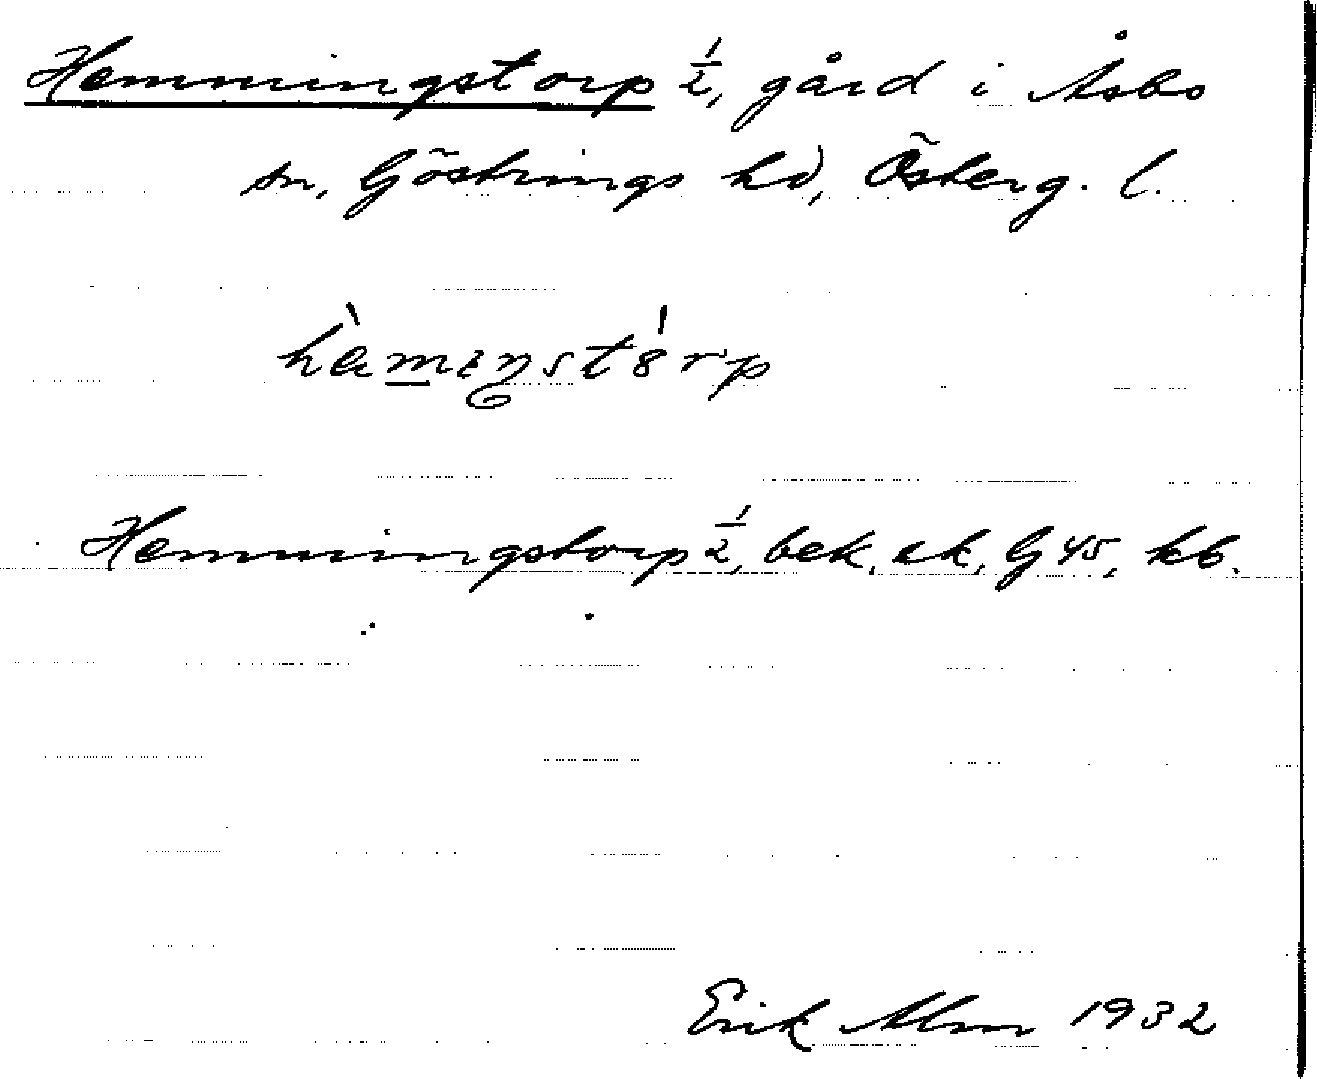 Hemmingstorp 1/2, gård i Åsbo
sn, Göstrings hd, Österg. l.
hèmıŋstórp
Hemmingstorp 1/2, bek, ek, G 45, kb.
Erik Alm 1932